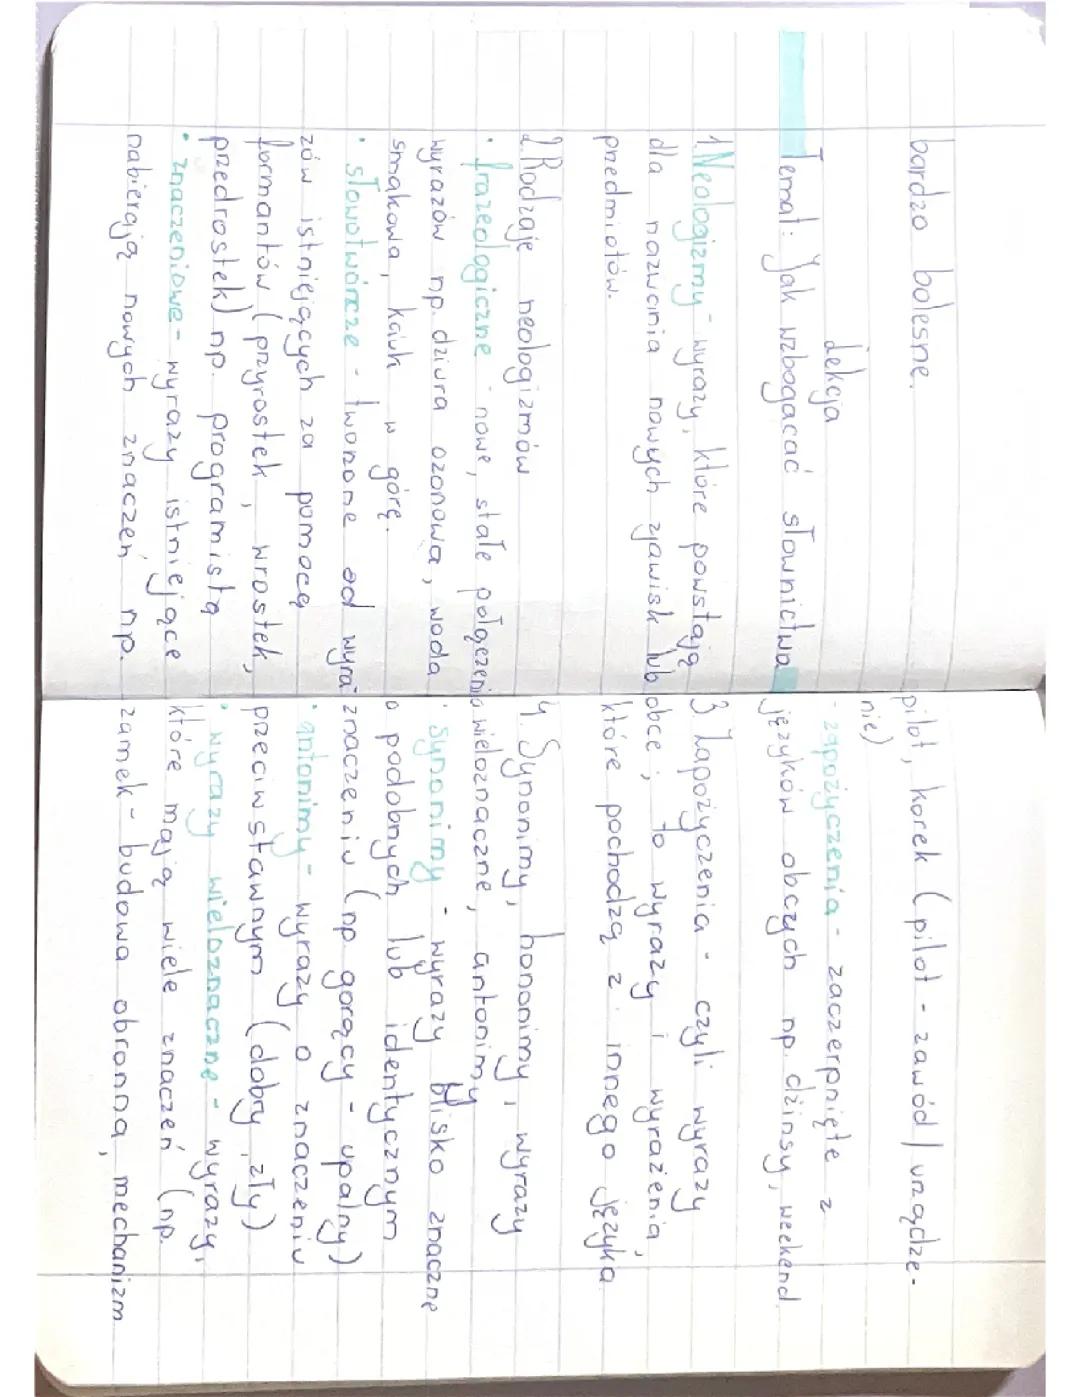 bardzo bolesne.
Lekcja
Temat: Jak wzbogacać słownictwo
1. Neologizmy - wyrazy, które powstają
dla nazwania nowych zjawisk lub
przedmiotów.
2. Rodzaje neologizmów
• frazeologiczne - nowe, stałe połączenia
wyrazów np. dziura ozonowa, woda
smakowa, kciuk w górę.
• słowotwórcze - tworzone od wyra-
zów istniejących za pomocą
formantów (przyrostek, wrostek,
przedrostek) np. programista
• znaczeniowe - wyrazy istniejące
nabierają nowych znaczeń np.
pilot, korek (pilot - zawód / urządze-
nie)
- zapożyczenia - zaczerpnięte z
języków obczych np. dżinsy, weekend
3. Zapożyczenia - czyli wyrazy
obce; to wyrazy i wyrażenia,
które pochodzą z innego języka
4. Synonimy, homonimy, wyrazy
wieloznaczne, antonimy
• Synonimy - wyrazy blisko znaczne
o podobnych lub identycznym
znaczeniu (np gorący - upalny)
• antonimy - wyrazy o znaczeniu
przeciwstawnym (dobry, zły)
• wyrazy wieloznaczne - wyrazy,
które mają wiele znaczeń (np.
zamek - budowa obronna, mechanizm